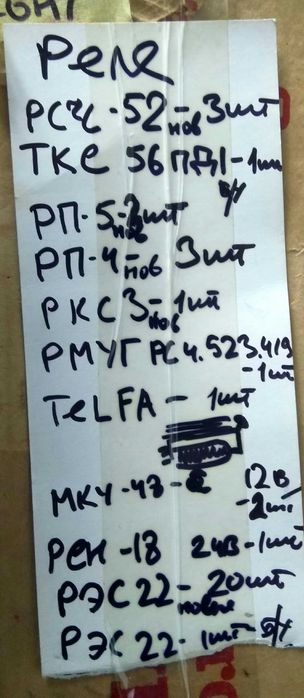 Реле
РСЧС-52-3шт
нов
ТКЕ 56ПД1-1шт
б/у
РП-5-2шт
нов
РП-4-нов 3шт
РКС3-1шт
нов
РМУГ РС4.523.419
-1шт
TeLFA - 1шт
МКУ-48-С 12В
-2шт
РЕН-18 24В-1шт
РЭС22-20шт
новые
РЭС22-1шт-б/у